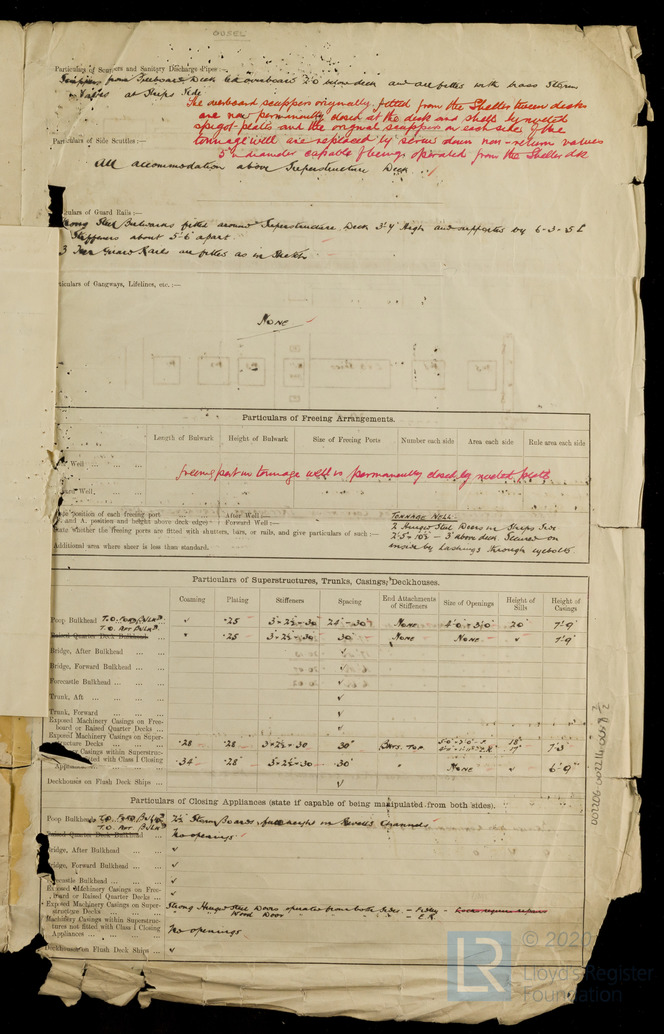 OUSEL
Particulars of Scuppers and Sanitary Discharge Pipes:—
Scuppers from Freeboard Deck led overboard 2'0 below deck and are fitted with brass Storm
Valves at Ships Side
The overboard scuppers originally fitted from the Shelter tween decks
are now permanently closed at the deck and shell by riveted
spigot plates and the original scuppers on each side of the
tonnage well are replaced by screw down non-return valves
5" diameter capable of being operated from the Shelter dk
Particulars of Side Scuttles:—
All accommodation above Superstructure Deck
culars of Guard Rails:—
Strong Steel Bulwarks fitted around Superstructure Deck High and supported by
Stiffeners about 5'6 apart
3 Guard Rails are fitted as in Sketch
rticulars of Gangways, Lifelines, etc.:—
NONE
Particulars of Freeing Arrangements.
Length of Bulwark Height of Bulwark Size of Freeing Ports Number each side Area each side Rule area each side
Well
freeing port in tonnage well is permanently closed by riveted plate
Well
position of each freeing port After Well:—
and A. position and height above deck edge) Forward Well:—
State whether the freeing ports are fitted with shutters, bars, or rails, and give particulars of each:—
Additional area where sheer is less than standard.
TONNAGE WELL.
2 Hinged Steel Doors in Ships Side
3' above deck Secured on
inside by Lashings through eyebolts.
Particulars of Superstructures, Trunks, Casings, Deckhouses.
Coaming Plating Stiffeners Spacing End Attachments of Stiffeners Size of Openings Height of Sills Height of Casings
Poop Bulkhead T.O. FORD BULKD. ✓ ·25 3×2½×·30 24"-30" NONE 4'0 × 3'0 20" 7'9"
T.O. AFT BULKD.
Raised Quarter Deck Bulkhead ·25 3×2½×·30 30" NONE NONE ✓ 7'9"
Bridge, After Bulkhead ... ✓
Bridge, Forward Bulkhead ... ✓
Forecastle Bulkhead ... ✓
Trunk, Aft ... ✓
Trunk, Forward ... ✓
Exposed Machinery Casings on Free-
board or Raised Quarter Decks ... ✓
Exposed Machinery Casings on Super-
structure Decks ... ·28 ·28 3×2½×·30 30" BKTS. TOP 18" 17" 7'3"
Casings within Superstruc-
fitted with Class I Closing
Appliances ·34 ·28 3×2½×·30 30" " NONE ✓ 6'9"
Deckhouses on Flush Deck Ships ... ✓
Particulars of Closing Appliances (state if capable of being manipulated from both sides).
Poop Bulkhead T.O. FORD BULKD. 2½ Storm Boards full height in Rivetted Channels
T.O. AFT BULKD.
Raised Quarter Deck Bulkhead No openings
Bridge, After Bulkhead ... ✓
Bridge, Forward Bulkhead ... ✓
Forecastle Bulkhead ... ✓
Exposed Machinery Casings on Free-
board or Raised Quarter Decks ... ✓
Exposed Machinery Casings on Super-
structure Decks ... Strong Hinged Steel Doors operated from both sides - Fidley -
Wood Door - E.R.
Machinery Casings within Superstruc-
tures not fitted with Class I Closing
Appliances ... No openings
Deckhouses on Flush Deck Ships ... ✓
LR
© 2020
Lloyd's Register
Foundation